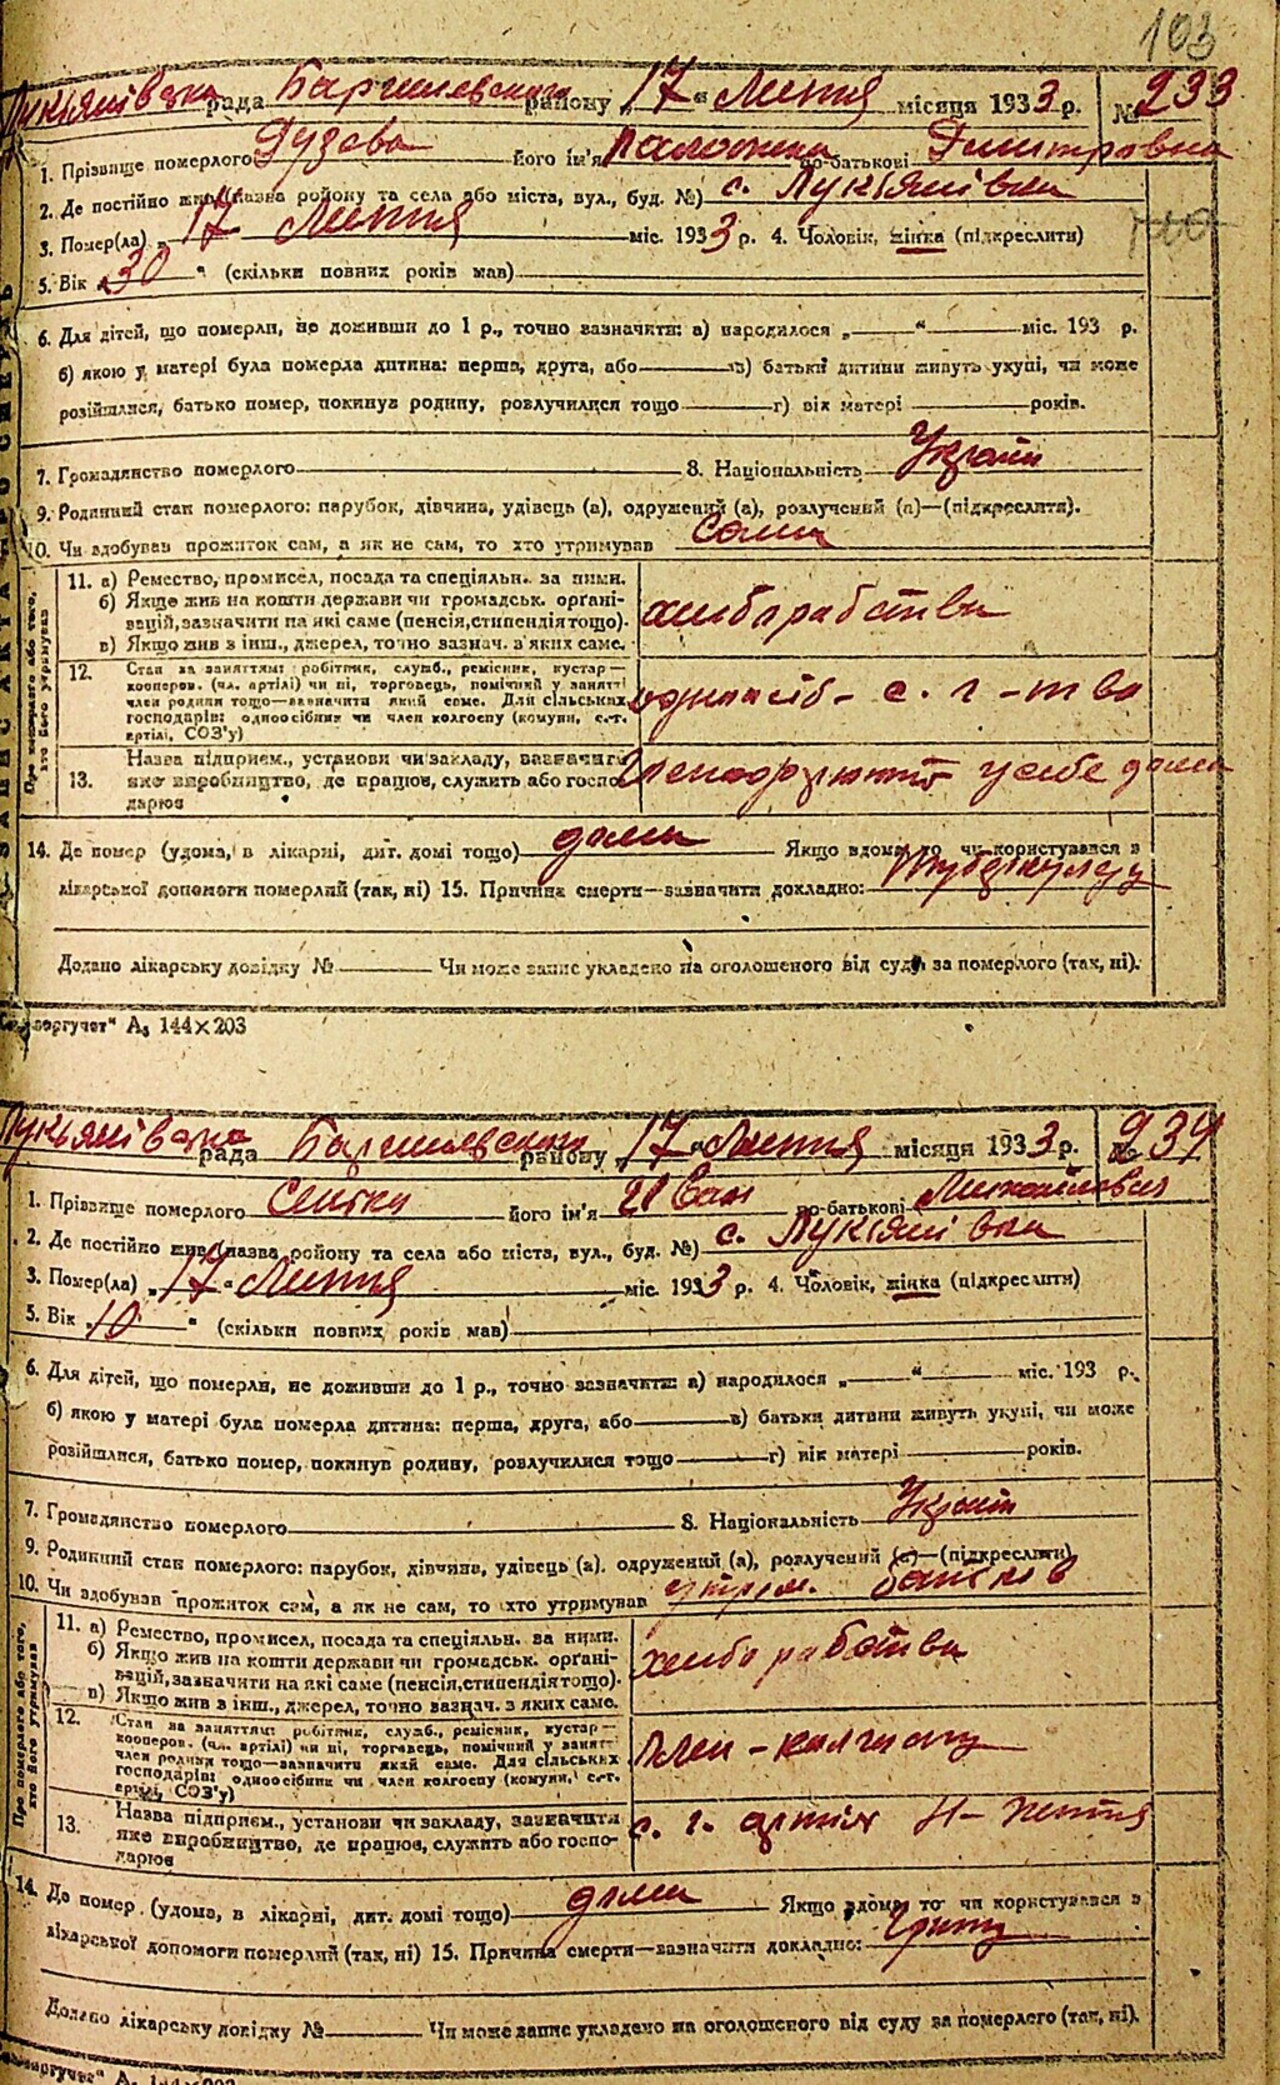 103
Лукьянівська рада Баришевського району „17“ Липня місяця 1933 р. № 233
1. Прізвище померлого Гузева його ім'я по-батькові Дмитровна
2. Де постійно жив (назва району та села або міста, вул., буд. №) с. Лукьянівка
3. Помер(ла) „17 Липня міс. 1933 р. 4. Чоловік, жінка (підкреслити)
5. Вік „30“ (скільки повних років мав)
6. Для дітей, що померли, не доживши до 1 р., точно зазначити: а) народилося „ “ міс. 193 р.
б) якою у матері була померла дитина: перша, друга, або в) батьки дитини живуть укупі, чи може
розійшлися, батько помер, покинув родину, розлучилися тощо г) вік матері років.
7. Громадянство померлого 8. Національність Україн
9. Родинний стан померлого: парубок, дівчина, удівець (а), одружений (а), розлучений (а)—(підкреслити).
10. Чи здобував прожиток сам, а як не сам, то хто утримував Сама
Про померлого або того, хто його утримував
11. а) Ремество, промисел, посада та спеціяльн. за ними.
б) Якще жив на кошти держави чи громадськ. орґані-
зацій, зазначити на які саме (пенсія, стипендія тощо).
в) Якщо жив з інш., джерел, точно зазнач. з яких саме.
хліборабства
12. Стан за заняттям: робітник, служб., ремісник, кустар—
кооперов. (чл. артілі) чи ні, торговець, помічний у занятті
член родини тощо—зазначити який саме. Для сільських
господарів: одноосібник чи член колгоспу (комуни, с.-г.
артілі, СОЗ'у)
одноосіб- с. г-тва
13. Назва підприєм., установи чи закладу, зазначити
яке виробництво, де працює, служить або госпо-
дарює
у себе дома
14. Де помер (удома, в лікарні, дит. домі тощо) дома Якщо вдома, то чи користувався з
лікарської допомоги померлий (так, ні) 15. Причина смерти—зазначити докладно: туберкульоз
Додано лікарську довідку № Чи може запис укладено на оголошеного від суду за померлого (так, ні).
А₅ 144×203
Лукьянівська рада Баришевського району „17“ Липня місяця 1933 р. № 234
1. Прізвище померлого його ім'я Иван по-батькові Михайлович
2. Де постійно жив (назва району та села або міста, вул., буд. №) с. Лукьянівка
3. Помер(ла) „17“ Липня міс. 1933 р. 4. Чоловік, жінка (підкреслити)
5. Вік „10“ (скільки повних років мав)
6. Для дітей, що померли, не доживши до 1 р., точно зазначити: а) народилося „ “ міс. 193 р.
б) якою у матері була померла дитина: перша, друга, або в) батьки дитини живуть укупі, чи може
розійшлися, батько помер, покинув родину, розлучилися тощо г) вік матері років.
7. Громадянство померлого 8. Національність Україн
9. Родинний стан померлого: парубок, дівчина, удівець (а), одружений (а), розлучений (а)—(підкреслити)
10. Чи здобував прожиток сам, а як не сам, то хто утримував утрим. батьків
Про померлого або того, хто його утримував
11. а) Ремество, промисел, посада та спеціяльн. за ними.
б) Якщо жив на кошти держави чи громадськ. орґані-
зацій, зазначити на які саме (пенсія, стипендія тощо).
в) Якщо жив з інш., джерел, точно зазнач. з яких саме.
хліборабства
12. Стан за заняттям: робітник, служб., ремісник, кустар—
кооперов. (чл. артілі) чи ні, торговець, помічний у занятті
член родини тощо—зазначити який саме. Для сільських
господарів: одноосібник чи член колгоспу (комуни, с.-г.
артілі, СОЗ'у)
член-колгоспу
13. Назва підприєм., установи чи закладу, зазначити
яке виробництво, де працює, служить або госпо-
дарює
с. г. артіл Н-життя
14. Де помер (удома, в лікарні, дит. домі тощо) дома Якщо вдома, то чи користувався з
лікарської допомоги померлий (так, ні) 15. Причина смерти—зазначити докладно: Грипу
Додано лікарську довідку № Чи може запис укладено на оголошеного від суду за померлого (так, ні).